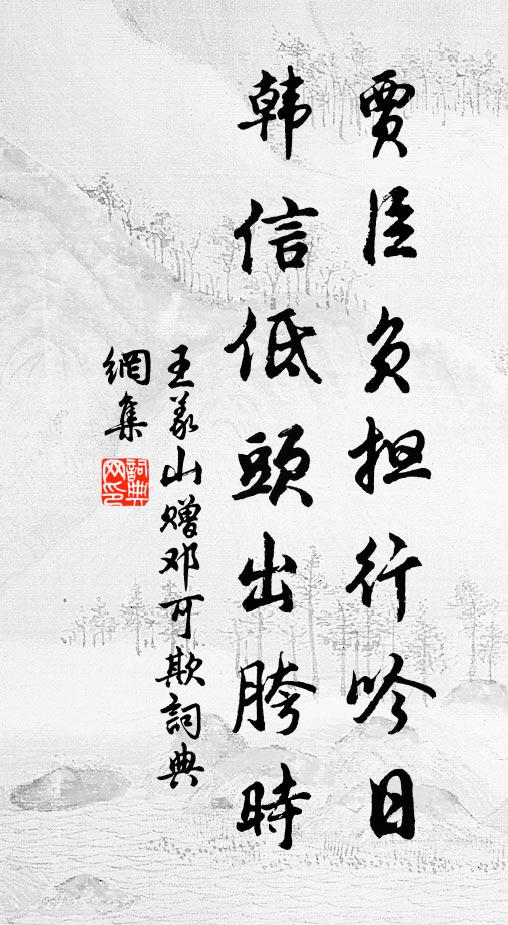 贾臣负担行吟日
韩信低頭出胯時
王义山赠邓可欺詞典
網集
詞典網印